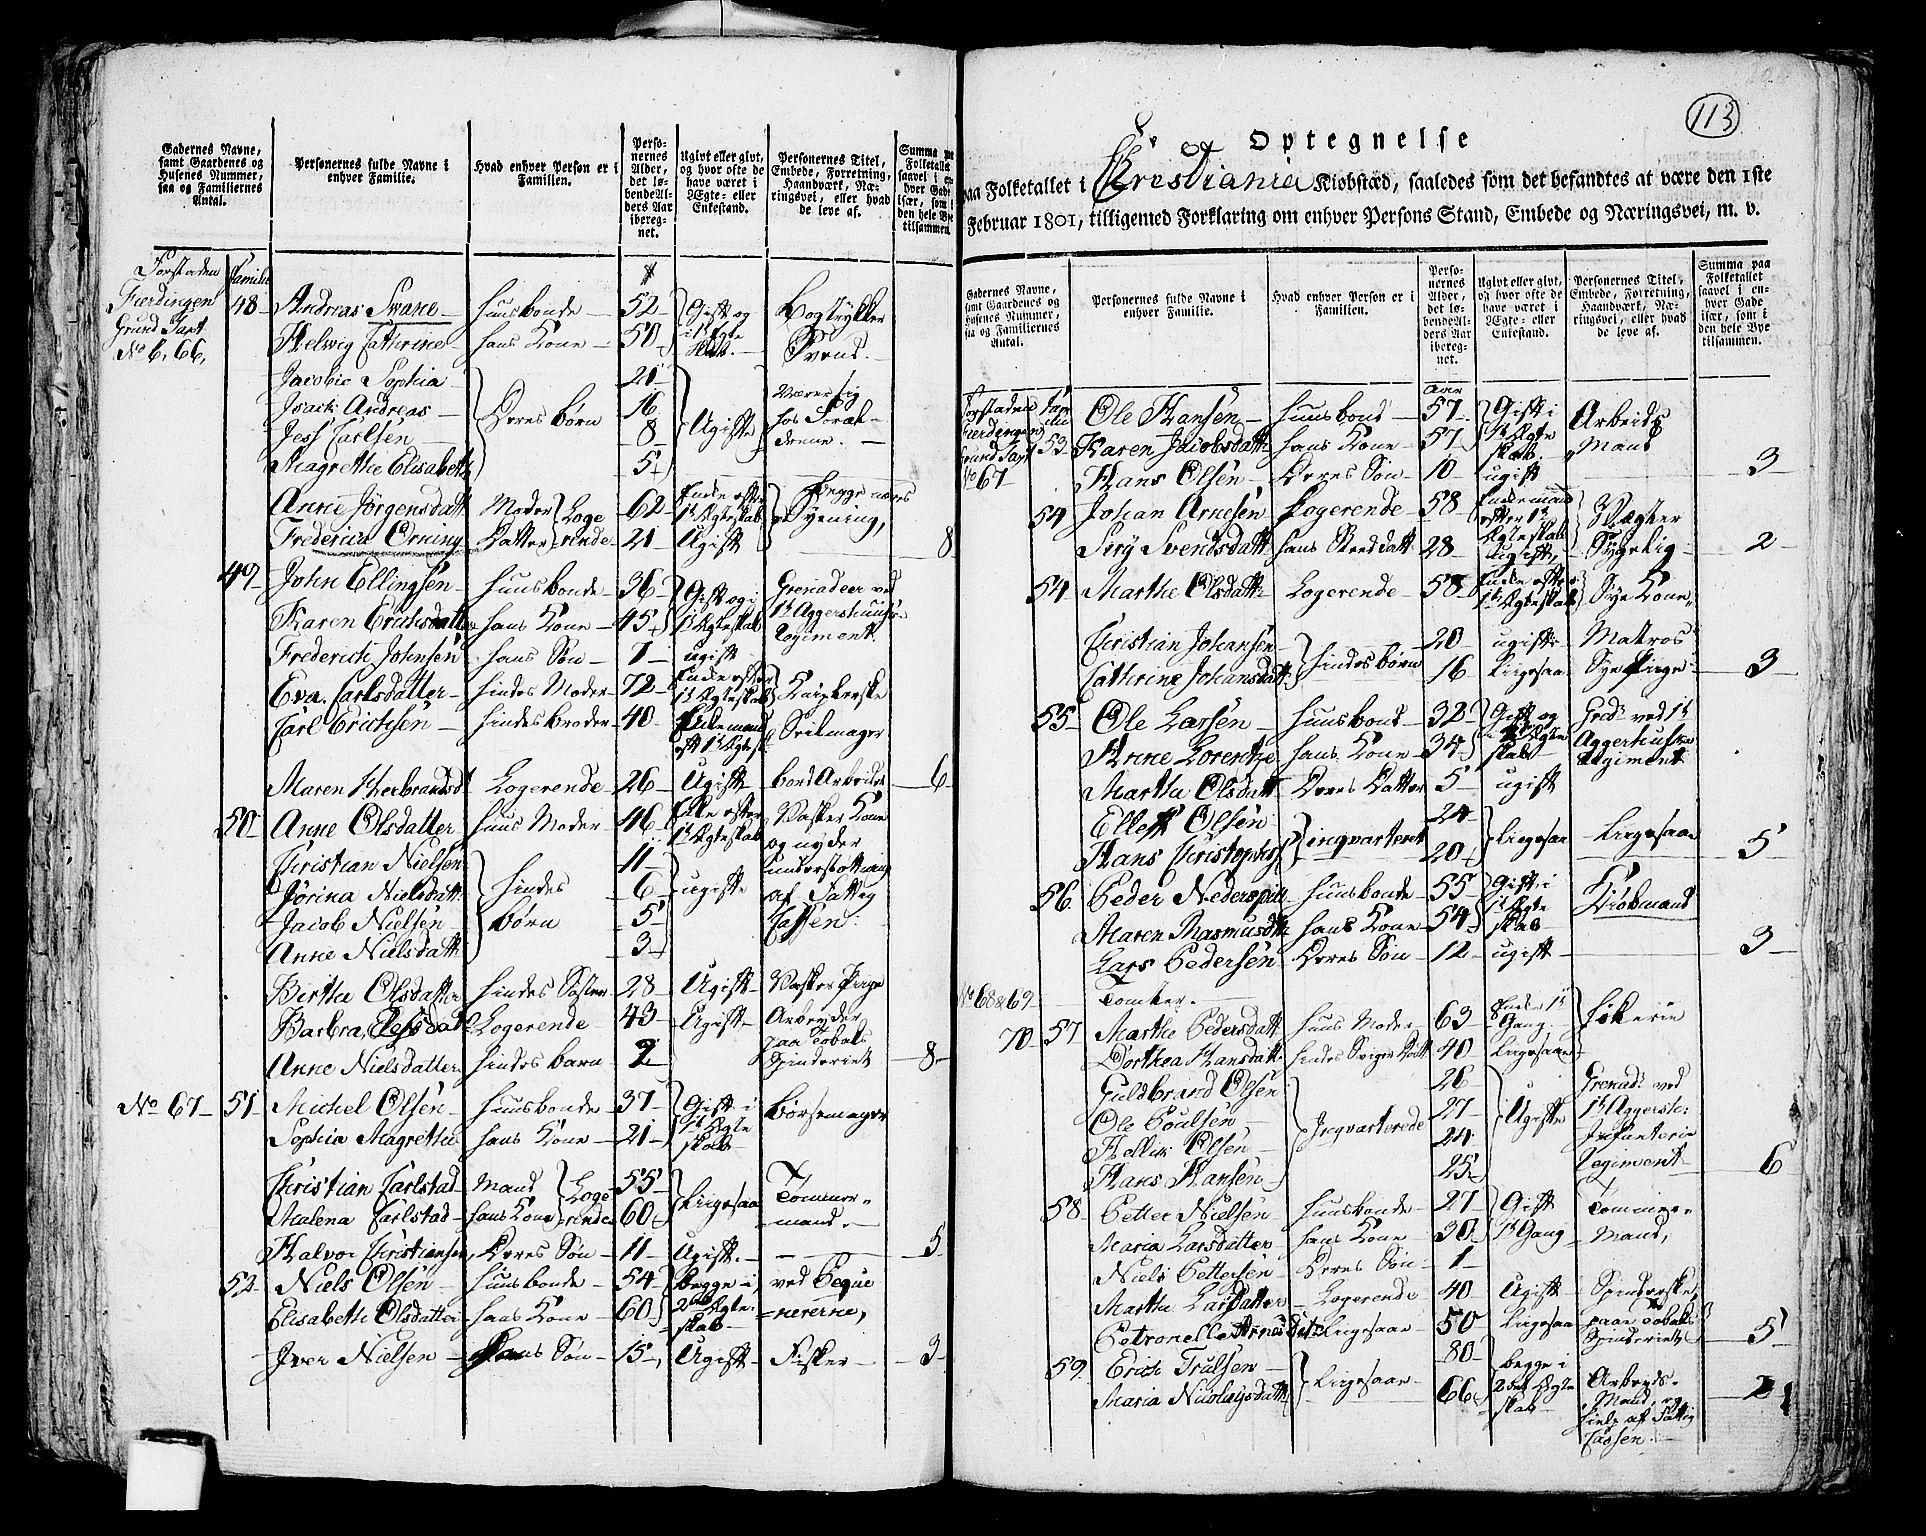 Gadernes Navne, samt Gaardenes og Husenes Nummer, saa og Familiernes Antal.
Personernes fulde Navne i enhver Familie.
Hvad enhver Person er i Familien.
Personernes Alder, det løbende Alders Aar iberegnet.
Ugivt eller givt, og hvor ofte de have været i Ægte- eller Enkestand.
Personernes Titel, Embede, Forretning, Haandværk, Næringsvei, eller hvad de leve af.
Summa paa Folketallet saavel i enhver Gade især, som i den hele Bye tilsammen
Forstaden Familie
Fierdingen 48 Andreas Swane Huusbonde 52 Gift og Bogtrykker
Grund Taxt
No 6, 66, Helwig Cathrine hans Kone 50 i 1te Ægteskab Svend.
Jacobie Sophia 21
Isach Andreas Deres Børn 16 Ugifte
Jess Carlsen 8
Magrethe Elisabeth 5
Anne Jörgensdatt Moder Logerende 62 Enke efter 1t Ægteskab
Frederica Orning Datter 21 Ugift Syening, 8
49 John Ellingsen Huusbonde 36 Gift og i Grenadeer ved
Karen Erichsdatter hans Kone 45 1t Ægteskab 1t Aggershuus Regiment
Frederich Johnsen hans Søn 7 ugift
Eva Carlsdatter hindes Moder 72 Enke efter 1t Ægteskab
Carl Erichsen hindes broder 40 Enkemand eft 1t Ægtesk Seilmager
Maren Herbrandsd Logerende 26 Ugift 6
50 Anne Olsdatter huus Moder 46 Enke efter 1t Ægteskab Vasker Kone
Christian Nielsen 11 og nyder
Jörina Nielsdatt hindes 6 ugifte understøttning
Jacob Nielsen børn 5 af Fattig
Anne Nielsdatt 3 Cassen
Birthe Olsdatter hindes Søster 28 Ugift Vasker Pige
Barbra Elefsdatt Logerende 43 Ugift Arbeyder
Anne Nielsdatter hindes barn 2 paa Tobaks Spinderiet 8
No 67 51 Michel Olsen Huusbonde 37 Gift i Børsemager
Sophia Magretha hans Kone 21 1t Ægteskab
Christian Carlstad Mand Logerende 55 Ligesaa Tømmermand.
Malena Carlstad hans Kone 60
Halvor Christiansen Deres Søn 11 Ugift 5
52 Niels Olsen Huusbonde 54 begge i ved Pique
Elisabeth Olsdatter hans Kone 60 2det Ægteskab =nererne,
Iver Nielsen Hans Søn 15 Ugift Fisker 3
113
Optegnelse
paa Folketallet i Christiania Kiøbstæd, saaledes som det befandtes at være den 1ste
Februar 1801, tilligemed Forklaring om enhver Persons Stand, Embede og Næringsvei, m. v.
Gadernes Navne, samt Gaardenes og Husenes Nummer, saa og Familiernes Antal.
Personernes fulde Navne i enhver Familie.
Hvad enhver Person er i Familien.
Personernes Alder, det løbende Alders Aar iberegnet.
Ugivt eller givt, og hvor ofte de have været i Ægte- eller Enkestand.
Personernes Titel, Embede, Forretning, Haandværk, Næringsvei, eller hvad de leve af.
Summa paa Folketallet saavel i enhver Gade især, som i den hele Bye tilsammen.
Forstaden Familie Ole Hansen Huusbond 57 Gift i Arbeids
Fierdingen 53 Karen Jacobsdatt hans Kone 57 1t Ægteskab Mand
Grund Taxt
No 67 Hans Olsen Deres Søn 10 ugift 3
54 Johan Arnesen Logerende 58 Enkemand efter 1t Ægteskab Vægter
Siry Svendsdatt hans Sted datt 28 ugift, Sygelig 2
54 Marthe Olsdatt Logerende 58 Enke efter 1t Ægteskab Sye Kone
Christian Johansen hindes børn 20 ugift Matros
Cathrine Johansdatt 16 Ligesaa Sye Pige 3
55 Ole Larsen Huusbond 32 Gift og Gred ved 1t
Anne Lorentze hans Kone 34 Ægteskab Aggerhuuske Regiment
Martha Olsdatt Deres Datter 5 ugift
Ellef Olsen inqvarteret 24 Ligesaa Ligesaa
Hans Christophers 20 5
56 Peder Nedersgaard Huusbonde 55 Gift i Kiøbmand
Maren Rasmusdtr hans Kone 54 1t Ægteskab
Lars Pedersen Deres Søn 12 ugift 3
No 68 & 69 Tomter.
70 57 Marthe Pedersdatt huus Moder 63 Enke 1t Gang Høkerie
Dorthea Hansdatt hindes Sviger Datt 40 Ligesaa
Guldbrand Olsen 26 Grenad ved
Ole Poulsen Inqvarterede 27 Ugifte 1t Aggersh:
Hellik Olsen 24 Infanterie
Hans Hansen 25 Regiment 6
58 Petter Nielsen Huusbonde 27 Gift Tømmer=
Maria Larsdatter hans Kone 30 1t Gang Mand,
Niels Pettersen Deres Søn 1
Martha Larsdatter Logerende 40 Ugift Spinderske
Petronelle Arnesdatt Ligesaa 50 Ligesaa paa Tobaks Spinderiet 5
59 Erich Trulsen Ligesaa 80 begge i Arbeyds-
Maria Nicolaysdatt 66 2det Ægteskab Mand, og hielp af Fattig Cassen. 2